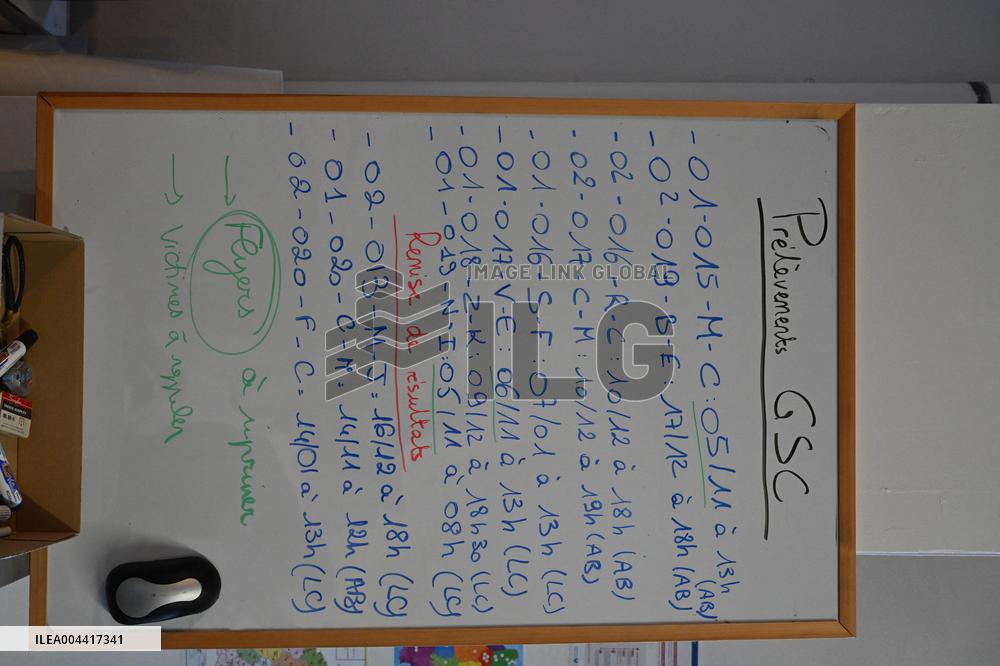 Prélèvements GSC
- 01-015-M-C : 05/11 à 13h (AB)
- 02-019-B-E : 17/12 à 18h (AB)
- 02-016-R-C : 10/12 à 18h (AB)
- 02-017-C-M : 10/12 à 19h (AB)
- 01-016-S-F : 07/01 à 13h (LC)
- 01-017-V-E : 06/11 à 13h (LC)
- 01-018-Z-K : 09/12 à 18h30 (LC)
- 01-019-N-I : 05/11 à 08h (LC)
Remise de résultats
- 02-018-M-J = 16/12 à 18h (LC)
- 01-020-C-M = 14/11 à 12h (AB)
- 02-020-F-C = 14/01 à 13h (LC)
→ Flyers à réprimer
→ Victimes à rappeler
IMAGE LINK GLOBAL
ILG
ILEA004417341